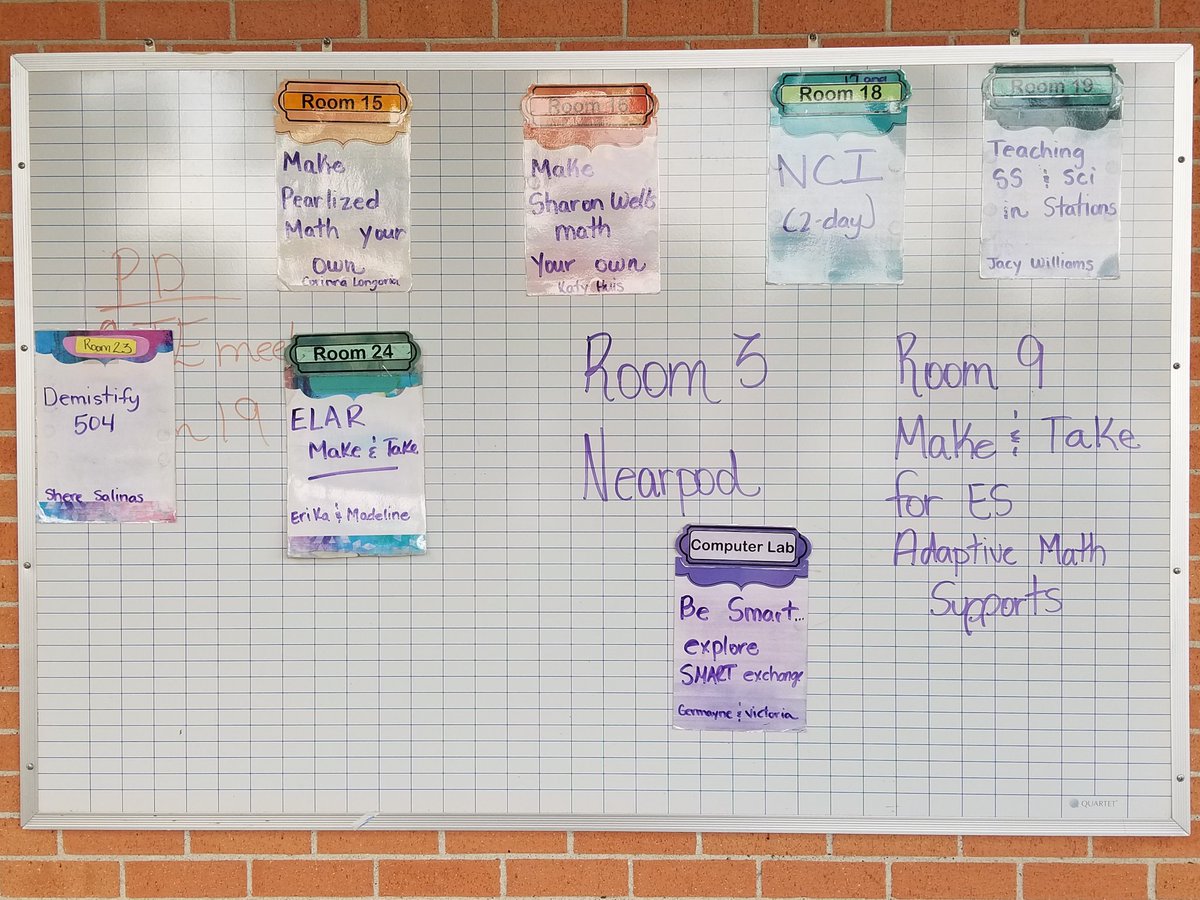 Room 15
Make
Pearlized
Math your
own
Corinna Longoria
Room 16
Make
Sharon Wells
math
Your own
Katy
17 and
Room 18
NCI
(2-day)
Room 19
Teaching
SS & Sci
in Stations
Jacy Williams
PD
Room 23
Demistify
504
Shere Salinas
Room 24
ELAR
Make & Take
Erika & Madeline
Room 3
Nearpod
Room 9
Make & Take
for ES
Adaptive Math
Supports
Computer Lab
Be Smart...
explore
SMART exchange
Germayne & Victoria
19
QUARTET